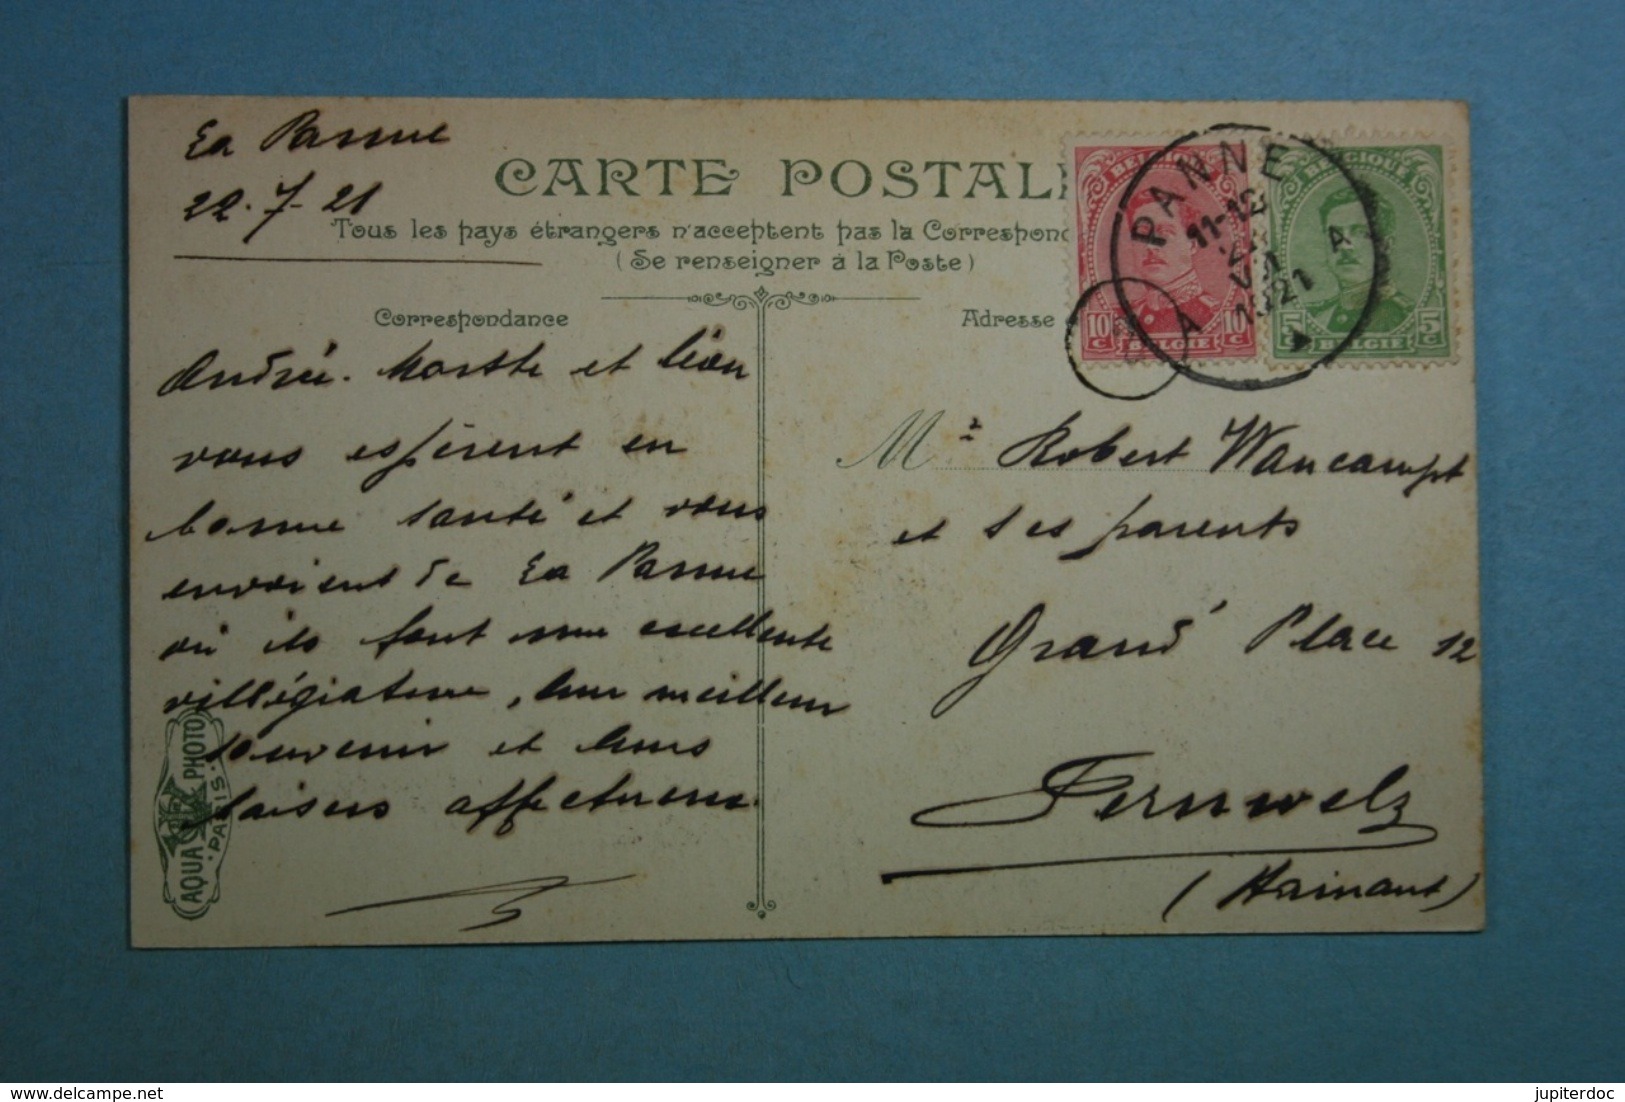 La Panne
22.7.21
CARTE POSTALE
Tous les pays étrangers n'acceptent pas la Correspond
(Se renseigner à la Poste)
Correspondance
Andrée. Marthe et Léon
vous espèrent en
bonne santé et vous
envoient de La Panne
où ils font une excellente
villégiature, leur meilleur
souvenir et leurs
baisers affectueux.
AQUA PHOTO
PARIS
Adresse
BELGIQUE
10 C 10 C
BELGIE
BELGIQUE
5 C 5 C
BELGIE
PANNE
11-12
VII
1921
A A
Mr Robert Wancampt
et ses parents
Grand'Place 12
Peruwelz
(Hainaut)
© For sale on delcampe.net
jupiterdoc